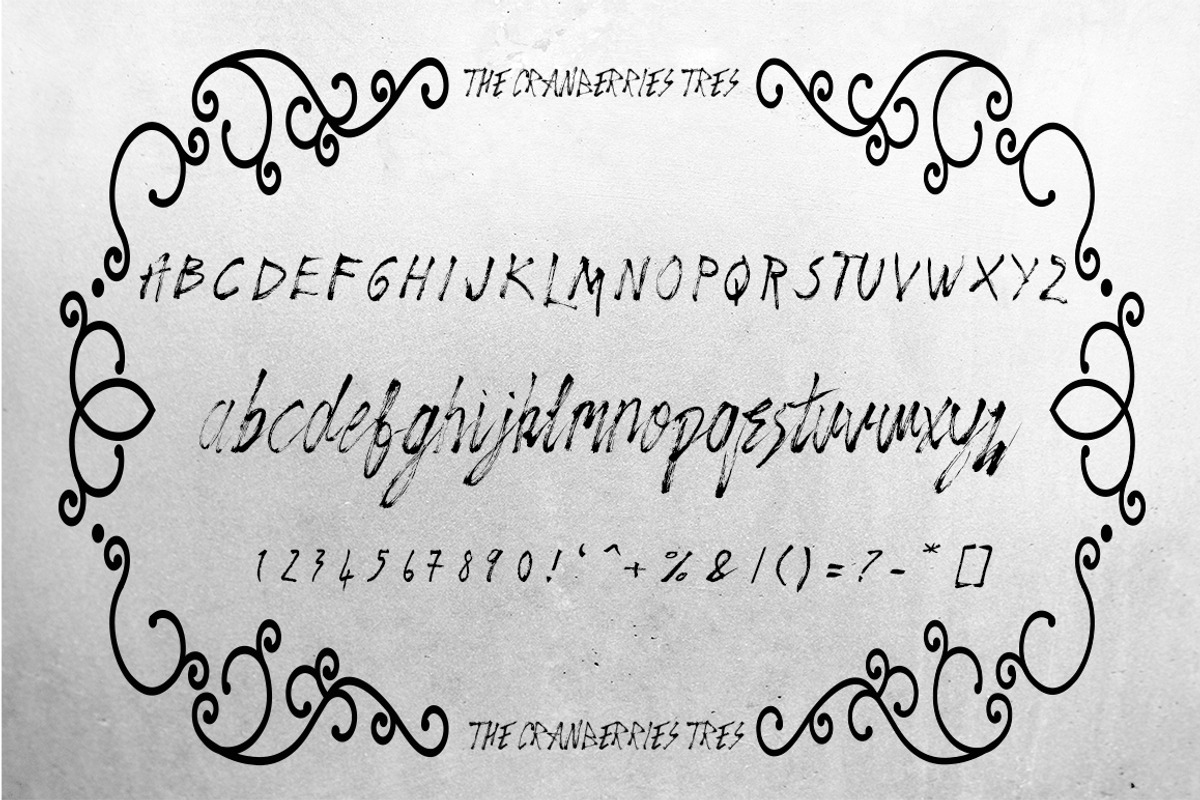 THE CRANBERRIES TRES
ABCDEFGHIJKLMNOPQRSTUVWXYZ
abcdefghijklmnopqrstuvwxyz
1234567890!‘^+%&/()=?-*[]
THE CRANBERRIES TRES